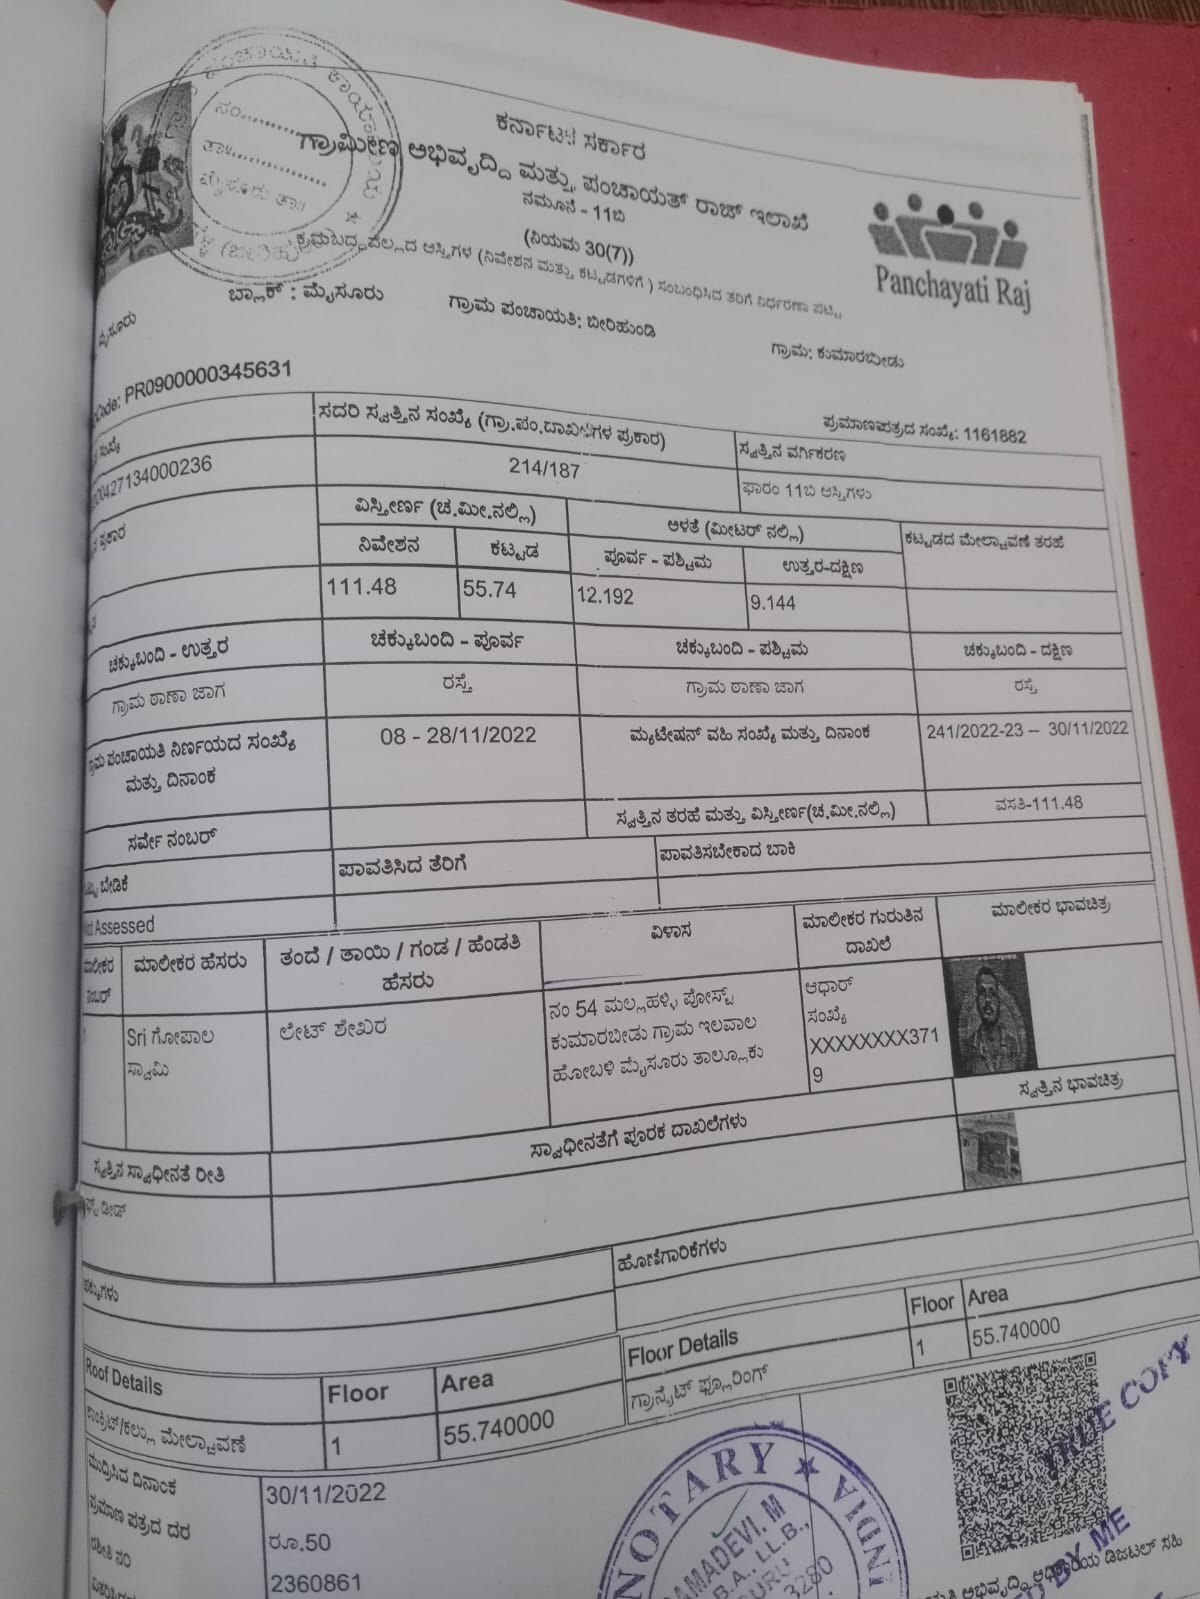 ಕರ್ನಾಟಕ ಸರ್ಕಾರ
ಗ್ರಾಮೀಣ ಅಭಿವೃದ್ದಿ ಮತ್ತು ಪಂಚಾಯತ್ ರಾಜ್ ಇಲಾಖೆ
ನಮೂನೆ - 11ಬಿ
(ನಿಯಮ 30(7))
ಕ್ರಮಬದ್ಧವಲ್ಲದ ಆಸ್ತಿಗಳ (ನಿವೇಶನ ಮತ್ತು ಕಟ್ಟಡಗಳಿಗೆ ) ಸಂಬಂಧಿಸಿದ ತೆರಿಗೆ ನಿರ್ಧರಣಾ ಪಟ್ಟಿ
Panchayati Raj
ಮೈಸೂರು ಬ್ಲಾಕ್ : ಮೈಸೂರು ಗ್ರಾಮ ಪಂಚಾಯತಿ: ಬೀರಿಹುಂಡಿ ಗ್ರಾಮ: ಕುಮಾರಬೀಡು
Code: PR0900000345631 ಪ್ರಮಾಣಪತ್ರದ ಸಂಖ್ಯೆ: 1161882
ಸಂಖ್ಯೆ ಸದರಿ ಸ್ವತ್ತಿನ ಸಂಖ್ಯೆ (ಗ್ರಾ.ಪಂ.ದಾಖಲೆಗಳ ಪ್ರಕಾರ) ಸ್ವತ್ತಿನ ವರ್ಗೀಕರಣ
427134000236 214/187 ಫಾರಂ 11ಬಿ ಆಸ್ತಿಗಳು
ಪ್ರಕಾರ ವಿಸ್ತೀರ್ಣ (ಚ.ಮೀ.ನಲ್ಲಿ) ಅಳತೆ (ಮೀಟರ್ ನಲ್ಲಿ) ಕಟ್ಟಡದ ಮೇಲ್ಚಾವಣೆ ತರಹೆ
ನಿವೇಶನ ಕಟ್ಟಡ ಪೂರ್ವ - ಪಶ್ಚಿಮ ಉತ್ತರ-ದಕ್ಷಿಣ
111.48 55.74 12.192 9.144
ಚಕ್ಕುಬಂದಿ - ಉತ್ತರ ಚಕ್ಕುಬಂದಿ - ಪೂರ್ವ ಚಕ್ಕುಬಂದಿ - ಪಶ್ಚಿಮ ಚಕ್ಕುಬಂದಿ - ದಕ್ಷಿಣ
ಗ್ರಾಮ ಠಾಣಾ ಜಾಗ ರಸ್ತೆ ಗ್ರಾಮ ಠಾಣಾ ಜಾಗ ರಸ್ತೆ
ಗ್ರಾಮ ಪಂಚಾಯತಿ ನಿರ್ಣಯದ ಸಂಖ್ಯೆ 08 - 28/11/2022 ಮ್ಯುಟೇಷನ್ ವಹಿ ಸಂಖ್ಯೆ ಮತ್ತು ದಿನಾಂಕ 241/2022-23 -- 30/11/2022
ಮತ್ತು ದಿನಾಂಕ
ಸರ್ವೇ ನಂಬರ್ ಸ್ವತ್ತಿನ ತರಹೆ ಮತ್ತು ವಿಸ್ತೀರ್ಣ(ಚ.ಮೀ.ನಲ್ಲಿ) ವಸತಿ-111.48
ಬೇಡಿಕೆ ಪಾವತಿಸಿದ ತೆರಿಗೆ ಪಾವತಿಸಬೇಕಾದ ಬಾಕಿ
Assessed
ಮಾಲೀಕರ ಮಾಲೀಕರ ಹೆಸರು ತಂದೆ / ತಾಯಿ / ಗಂಡ / ಹೆಂಡತಿ ವಿಳಾಸ ಮಾಲೀಕರ ಗುರುತಿನ ಮಾಲೀಕರ ಭಾವಚಿತ್ರ
ನಂಬರ್ ಹೆಸರು ದಾಖಲೆ
1 Sri ಗೋಪಾಲ ಲೇಟ್ ಶೇಖರ ನಂ 54 ಮಲ್ಲಹಳ್ಳಿ ಪೋಸ್ಟ್ ಆಧಾರ್
ಸ್ವಾಮಿ ಕುಮಾರಬೀಡು ಗ್ರಾಮ ಇಲವಾಲ ಸಂಖ್ಯೆ
ಹೋಬಳಿ ಮೈಸೂರು ತಾಲ್ಲೂಕು XXXXXXXX371
9
ಸ್ವತ್ತಿನ ಭಾವಚಿತ್ರ
ಸ್ವತ್ತಿನ ಸ್ವಾಧೀನತೆ ರೀತಿ ಸ್ವಾಧೀನತೆಗೆ ಪೂರಕ ದಾಖಲೆಗಳು
ಡೀಡ್
ಹಕ್ಕುಗಳು ಹೊಣೆಗಾರಿಕೆಗಳು
Roof Details Floor Area Floor Details Floor Area
ಕಾಂಕ್ರಿಟ್/ಕಲ್ಲು ಮೇಲ್ಚಾವಣೆ 1 55.740000 ಗ್ರಾನೈಟ್ ಫ್ಲೂರಿಂಗ್ 1 55.740000
ಮುದ್ರಿಸಿದ ದಿನಾಂಕ 30/11/2022
ಪ್ರಮಾಣ ಪತ್ರದ ದರ ರೂ.50
ರಶೀತಿ ನಂ 2360861
NOTARY ★ INDIA
RAMADEVI. M
B.A., LL.B.,
3280
TRUE COPY
BY ME
ಅಭಿವೃದ್ಧಿ ಅಧಿಕಾರಿಯ ಡಿಜಿಟಲ್ ಸಹಿ